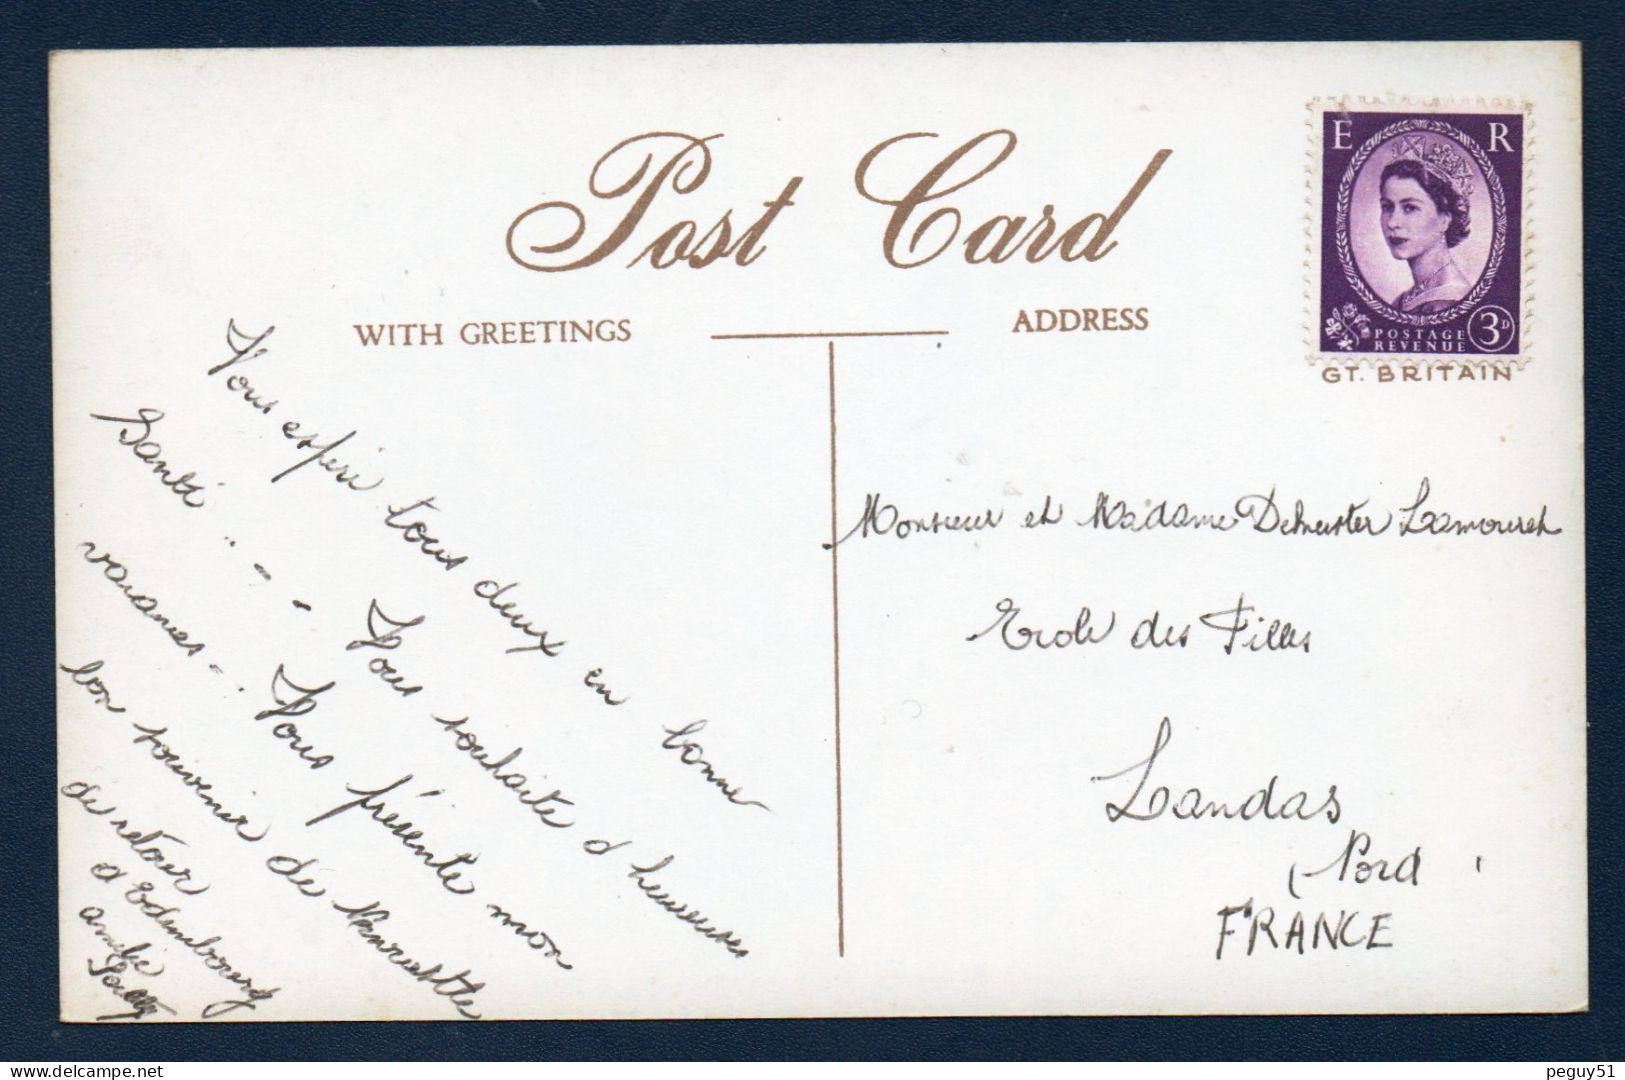 Post Card
WITH GREETINGS
ADDRESS
E R
POSTAGE
REVENUE
3D
GT. BRITAIN
Vous espère tous deux en bonne
Santé . - - Vous souhaite d heureuses
vacances - . Vous présente mon
bon souvenir de Newcastle
de retour
d Edimbourg
amitié
Monsieur et Madame Delmester Lamouret
Ecole des Filles
Landas
(Nord
FRANCE
peguy51